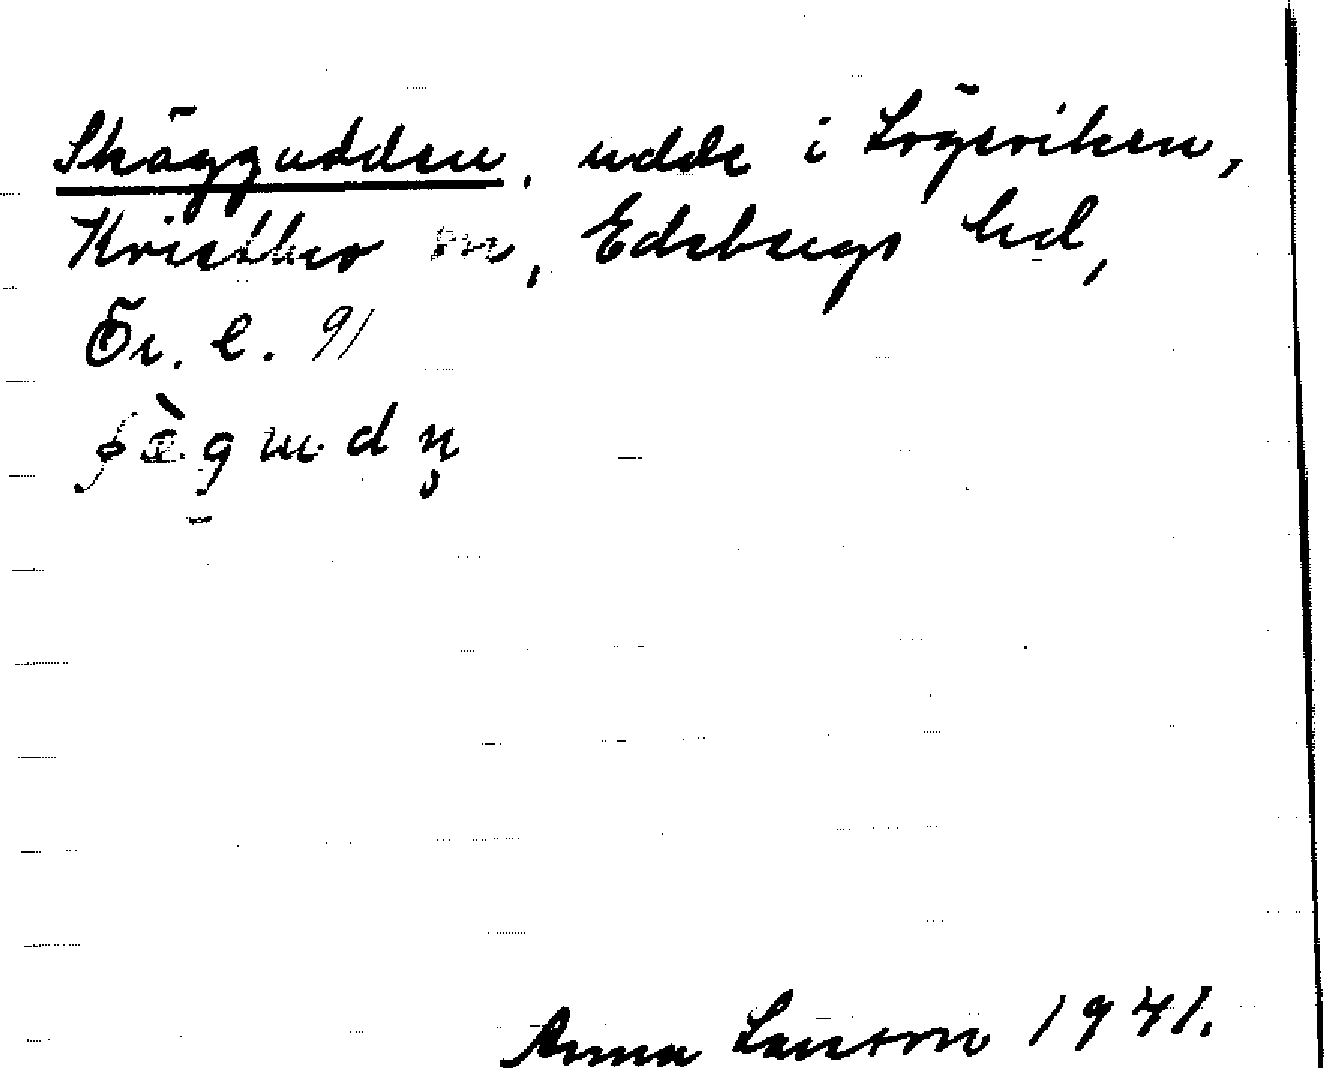 Skäggudden, udde i Lögeviken,
Kvistbro sn, Edsbergs hd,
Ör. l. 91
ʃæ̀gɯdn̥
Anna Larsson 1941.